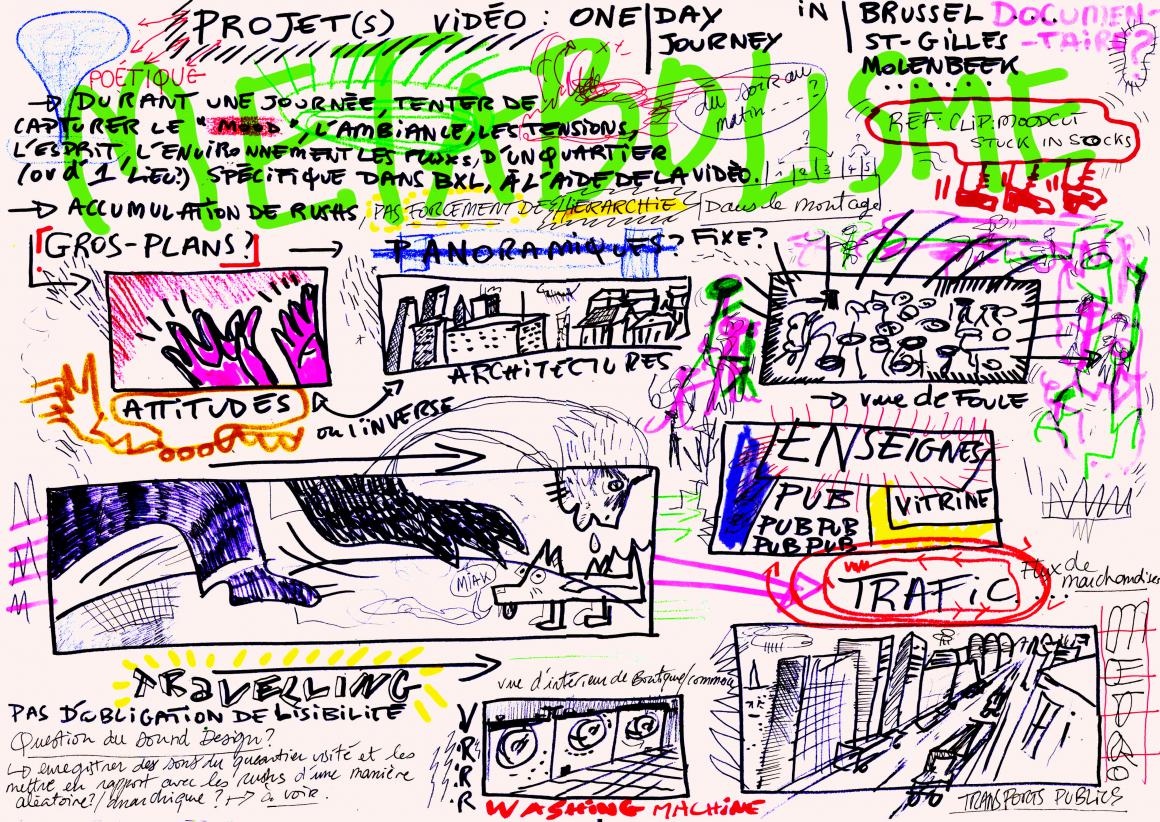 PROJET(S) VIDÉO : ONE DAY JOURNEY IN BRUSSEL
ST-GILLES
MOLENBEEK
......
DOCUMEN-
-TAIRE?
POÉTIQUE
MÉTABOLISME
→ DURANT UNE JOURNÉE, TENTER DE
CAPTURER LE "MOOD", L'AMBIANCE, LES TENSIONS,
L'ESPRIT, L'ENVIRONNEMENT LES FLUXS, D'UN QUARTIER
(OU D'1 LIEU?) SPÉCIFIQUE DANS BXL, À L'AIDE DE LA VIDÉO.
du soir au
matin ----?
REF: CLIP: MOODCUT
STUCK IN SOCKS
→ ACCUMULATION DE RUSHS PAS FORCEMENT DE HIERARCHIE
1 2 3 4 5
Dans le montage
[GROS-PLANS?]
→ PANORAMIQUES? FIXE?
ATTITUDES
ou l'iNVERSE
ARCHITECTURES
→ vue de FOULE
ENSEIGNES
PUB
PUB PUB
PUB PUB
VITRINE
MIAX
TRAFIC....
Flux de
marchandises
TRAVELLING
PAS D'OBLIGATION DE LISIBILITÉ
Question du Sound Design?
↳ enregistrer des sons du quartier visité et les
mettre en rapport avec les rushs d'une manière
aléatoire?/anarchique? → à voir.
vue d'intérieur de Boutique/commerce
V
R
R
R
R
WASHING MACHINE
TRANSPORTS PUBLICS